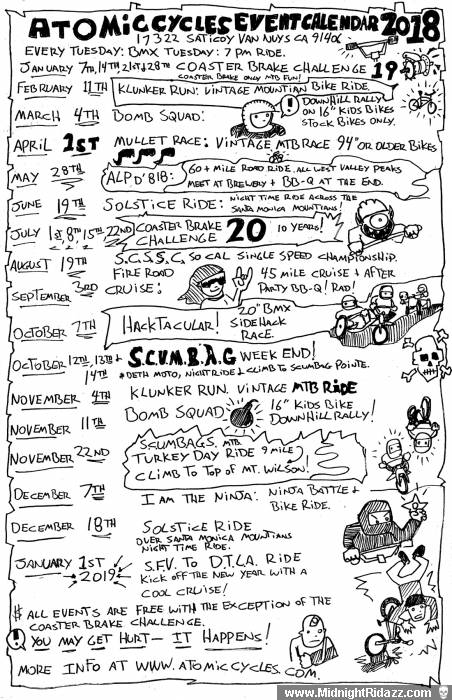 ATOMIC CYCLES EVENT CALENDAR 2018
17322 SATICOY VAN NUYS CA 91406
EVERY TUESDAY: BMX TUESDAY: 7 PM RIDE.
JANUARY 7TH, 14TH, 21ST & 28TH COASTER BRAKE CHALLENGE 19
COASTER BRAKE ONLY MTB FUN!
FEBRUARY 11TH KLUNKER RUN: VINTAGE MOUNTIAN BIKE RIDE.
MARCH 4TH BOMB SQUAD: DOWNHILL RALLY
ON 16" KIDS BIKES
STOCK BIKES ONLY.
APRIL 1ST MULLET RACE: VINTAGE MTB RACE 94" OR OLDER BIKES
MAY 28TH ALP D'818: 60+ MILE ROAD RIDE. ALL WEST VALLEY PEAKS
MEET AT BREWERY + BB-Q AT THE END.
JUNE 19TH SOLSTICE RIDE: NIGHT TIME RIDE ACROSS THE
SANTA MONICA MOUNTAINS!
JULY 1ST, 8TH, 15TH, 22ND COASTER BRAKE
CHALLENGE 20 10 YEARS!
AUGUST 19TH S.C.S.S.C. SO CAL SINGLE SPEED CHAMPIONSHIP.
SEPTEMBER 3RD FIRE ROAD
CRUISE: 45 MILE CRUISE + AFTER
PARTY BB-Q! RAD!
OCTOBER 7TH HACKTACULAR! 20" BMX
SIDEHACK
RACE.
OCTOBER 12TH, 13TH + 14TH S.C.U.M.B.A.G WEEK END!
* DETH MOTO, NIGHT RIDE + CLIMB TO SCUMBAG POINTE.
NOVEMBER 4TH KLUNKER RUN. VINTAGE MTB RIDE
NOVEMBER 11TH BOMB SQUAD 16" KIDS BIKE
DOWNHILL RALLY!
NOVEMBER 22ND SCUMBAGS. MTB
TURKEY DAY RIDE 9 MILE
CLIMB TO TOP OF MT. WILSON!
DECEMBER 7TH I AM THE NINJA: NINJA BATTLE +
BIKE RIDE.
DECEMBER 18TH SOLSTICE RIDE
OVER SANTA MONICA MOUNTIANS
NIGHT TIME RIDE.
JANUARY 1ST
2019 S.F.V. TO D.T.L.A. RIDE
KICK OFF THE NEW YEAR WITH A
COOL CRUISE!
$ ALL EVENTS ARE FREE WITH THE EXCEPTION OF THE
COASTER BRAKE CHALLENGE.
! YOU MAY GET HURT — IT HAPPENS!
MORE INFO AT WWW.ATOMICCYCLES.COM.
www.MidnightRidazz.com